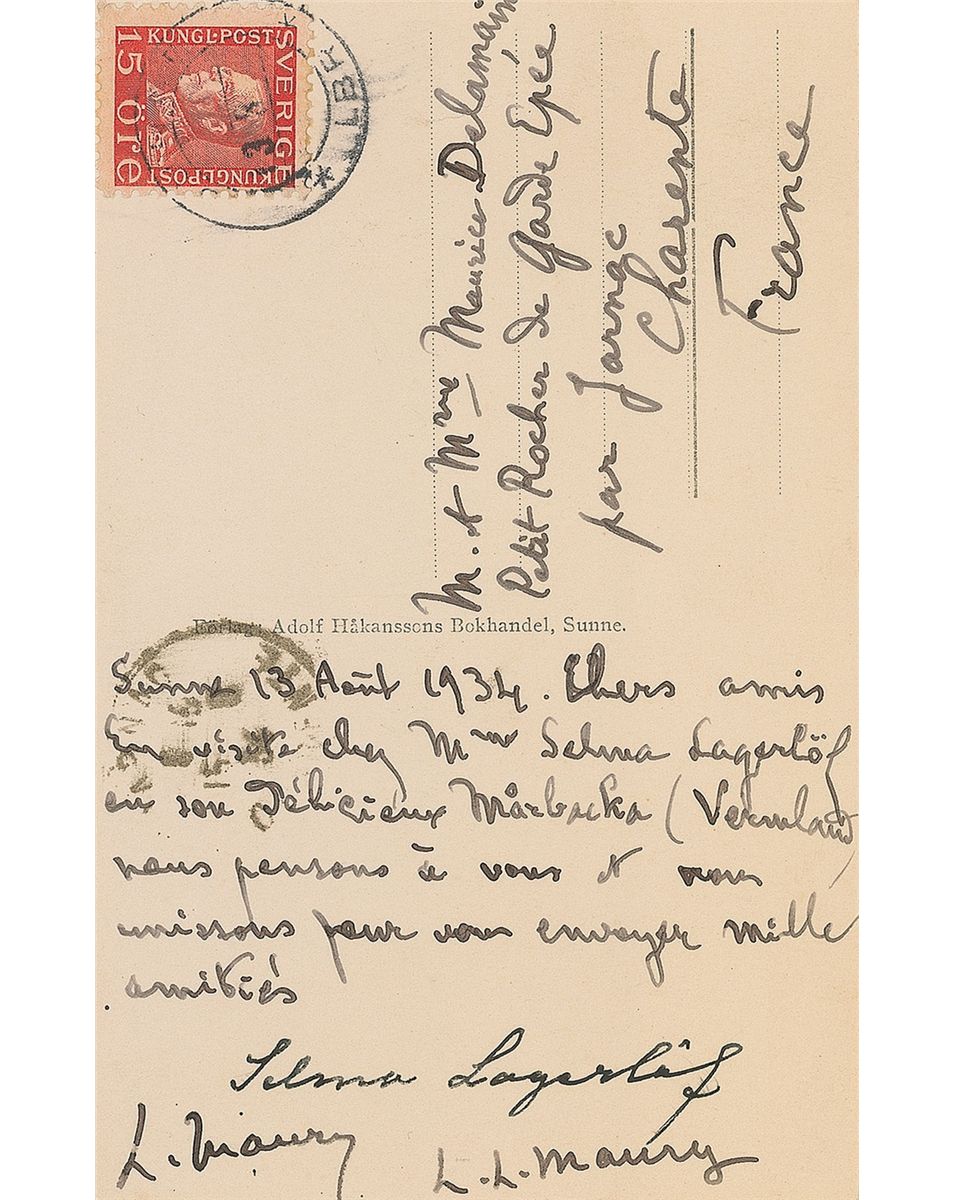 SVERIGE
KUNGL-POST
15 ÖRE
KUNGL-POST
M. et Mme Maurice Delamain
Petit Rocher de Garde Epée
par Jarnac
Charente
France
Förlag: Adolf Håkanssons Bokhandel, Sunne.
Sunne 13 Août 1934. Chers amis
En visite chez Mme Selma Lagerlöf
en son délicieux Mårbacka (Vermland)
nous pensons à vous et nous
unissons pour vous envoyer mille
amitiés
Selma Lagerlöf
L. Maury
L. L. Maury